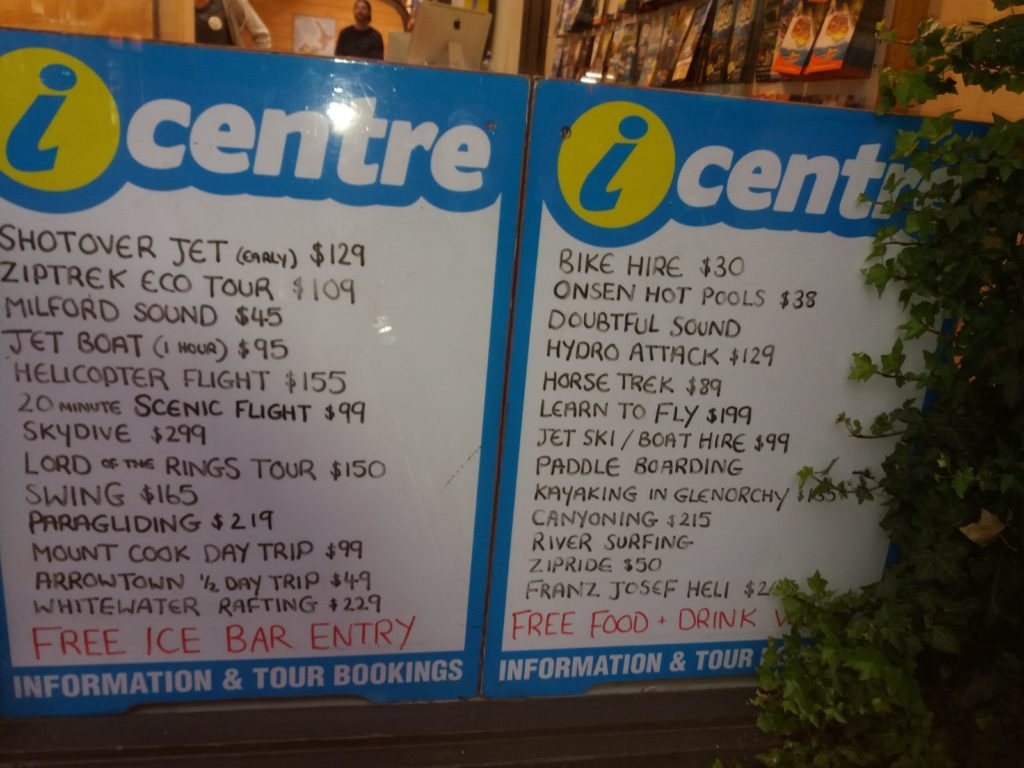 i centre
SHOTOVER JET (EARLY) $129
ZIPTREK ECO TOUR $109
MILFORD SOUND $45
JET BOAT (1 HOUR) $95
HELICOPTER FLIGHT $155
20 MINUTE SCENIC FLIGHT $99
SKYDIVE $299
LORD OF THE RINGS TOUR $150
SWING $165
PARAGLIDING $219
MOUNT COOK DAY TRIP $99
ARROWTOWN ½ DAY TRIP $49
WHITEWATER RAFTING $229
FREE ICE BAR ENTRY
INFORMATION & TOUR BOOKINGS
i centre
BIKE HIRE $30
ONSEN HOT POOLS $38
DOUBTFUL SOUND
HYDRO ATTACK $129
HORSE TREK $89
LEARN TO FLY $199
JET SKI / BOAT HIRE $99
PADDLE BOARDING
KAYAKING IN GLENORCHY
CANYONING $215
RIVER SURFING
ZIPRIDE $50
FRANZ JOSEF HELI
FREE FOOD + DRINK
INFORMATION & TOUR